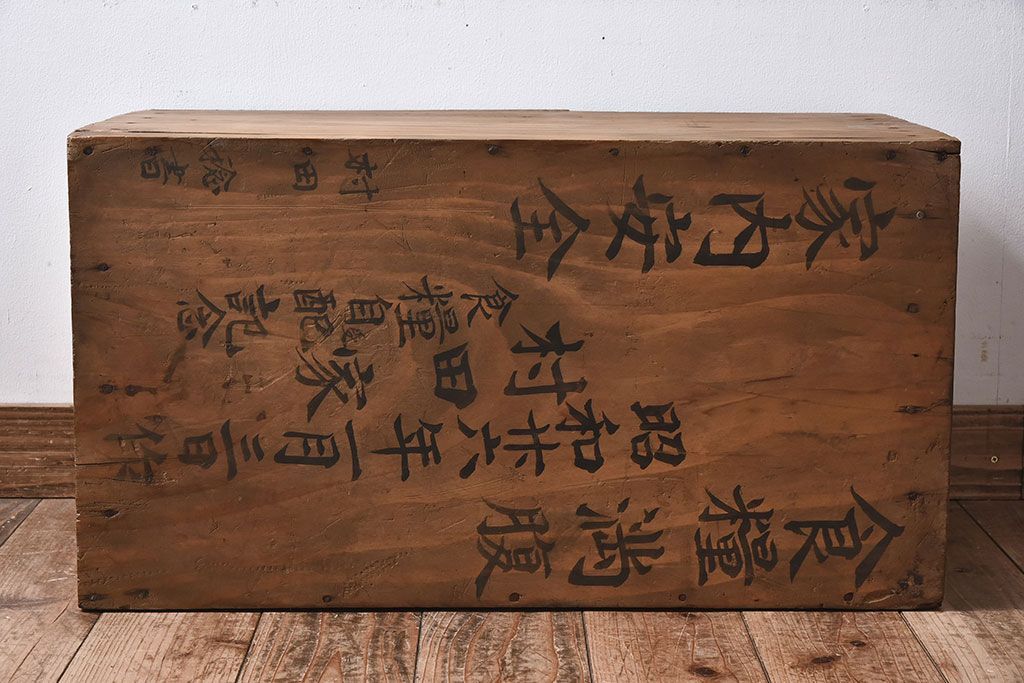 食糧満腹
昭和廿六年一月三日作
村田家
食糧自配記念
家内安全
村田 書